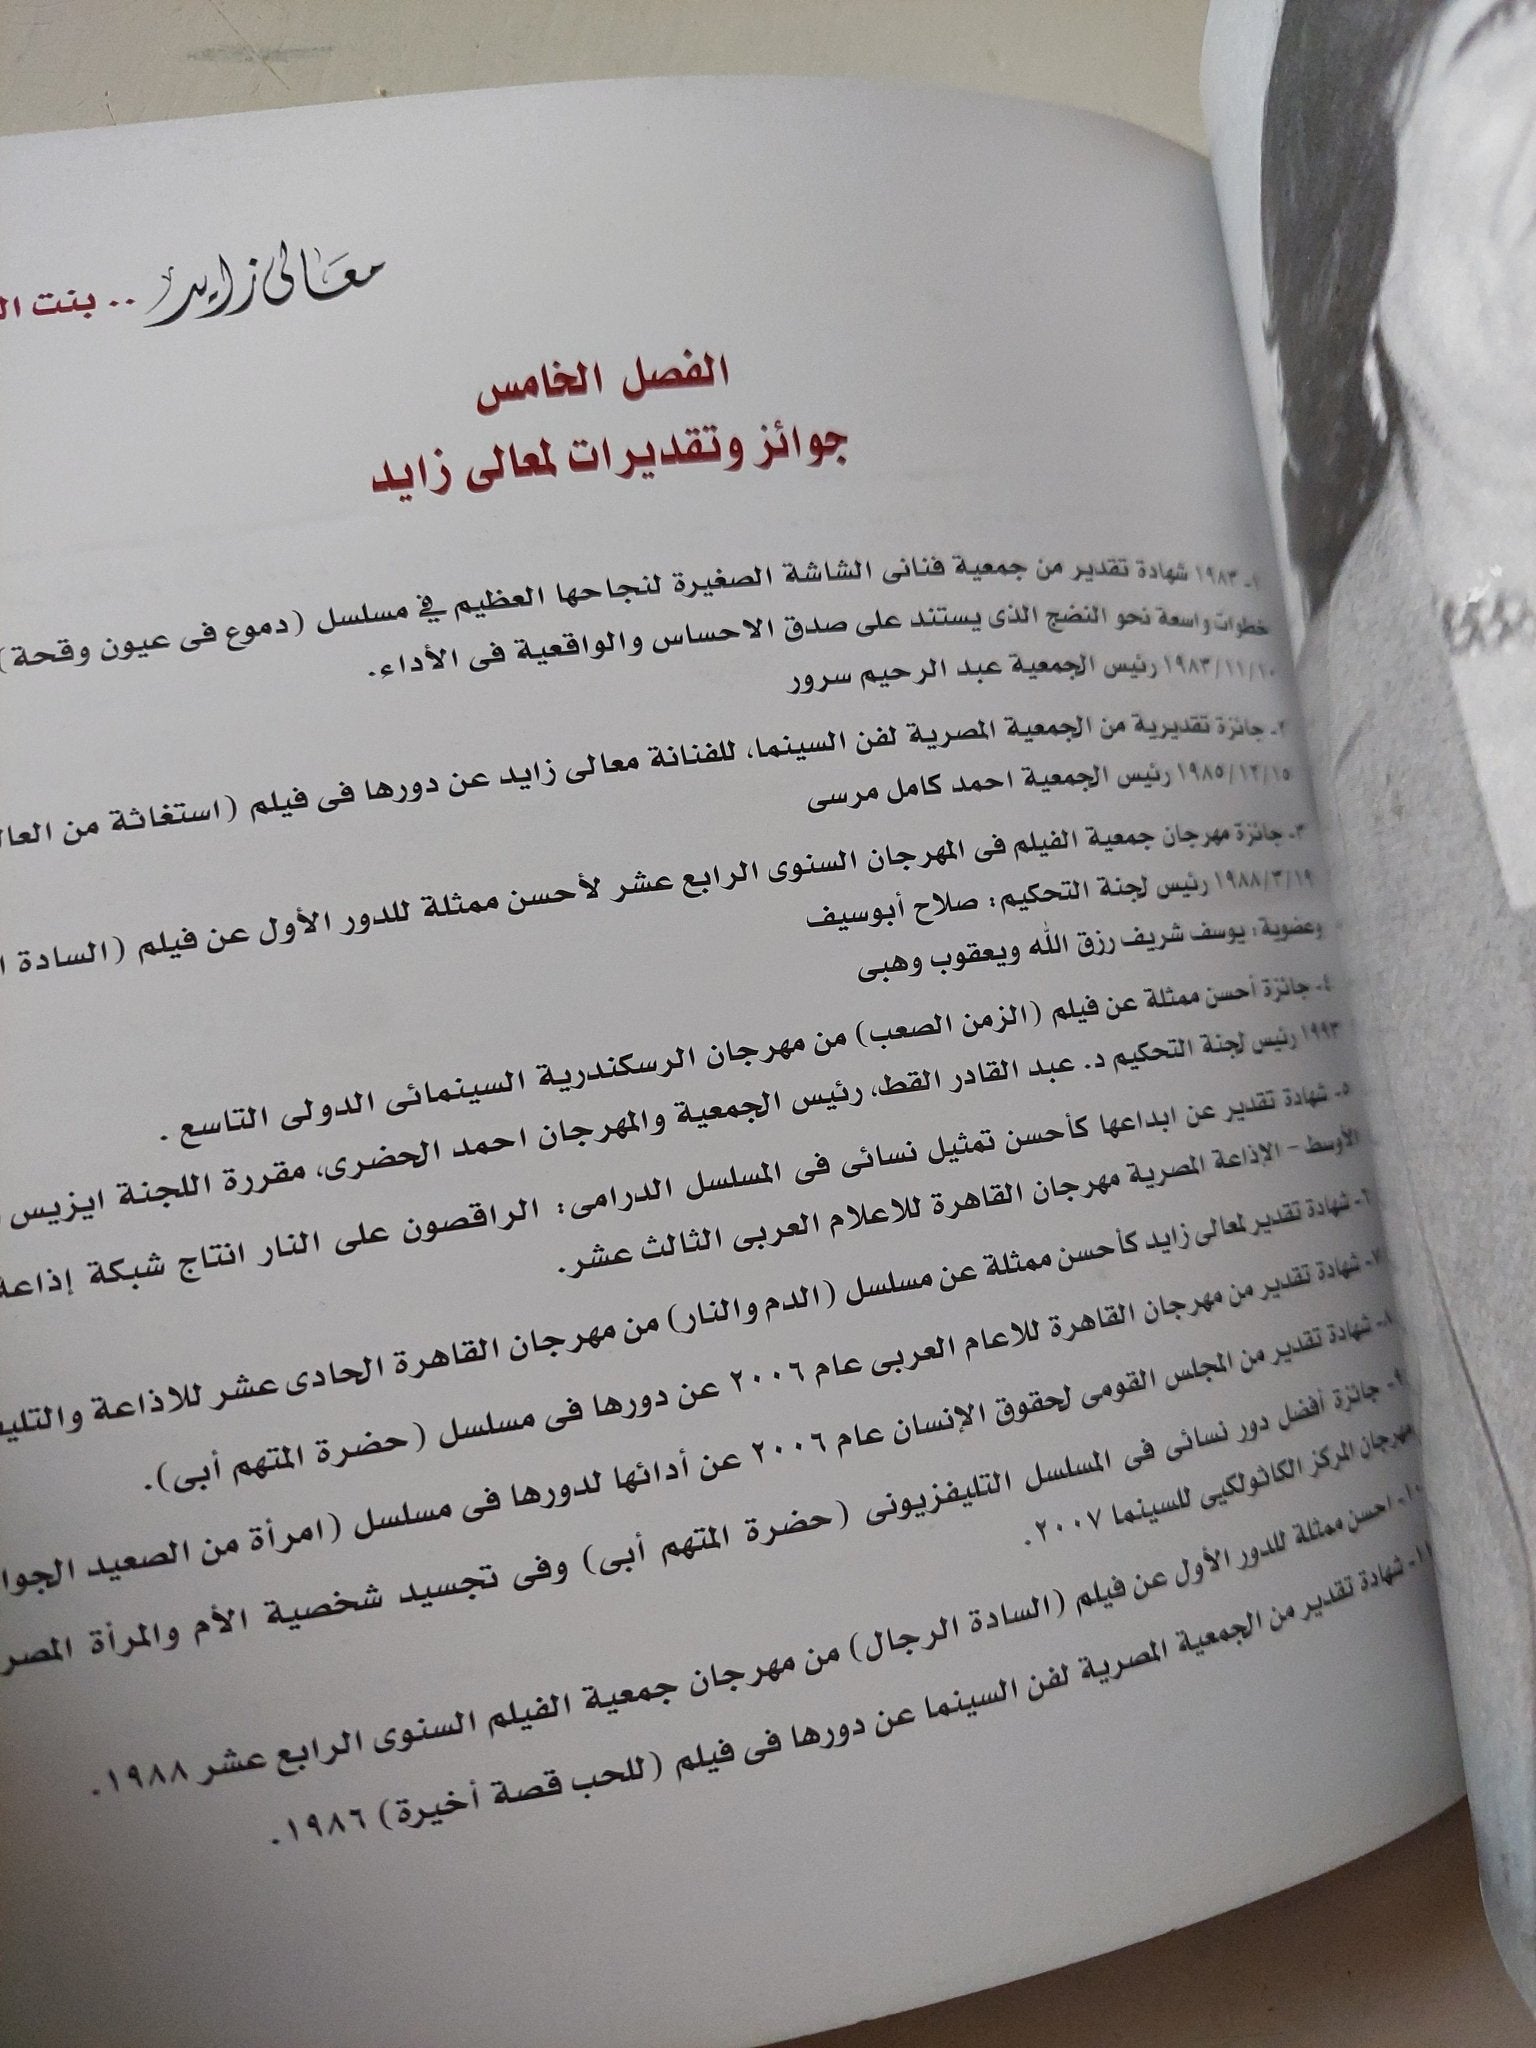 معالى زايد .. بنت
الفصل الخامس
جوائز وتقديرات لمعالى زايد
١- ١٩٨٣ شهادة تقدير من جمعية فنانى الشاشة الصغيرة لنجاحها العظيم في مسلسل (دموع فى عيون وقحة)
خطوات واسعة نحو النضج الذى يستند على صدق الاحساس والواقعية فى الأداء.
١٩٨٣/١١/١٠ رئيس الجمعية عبد الرحيم سرور
٢- جائزة تقديرية من الجمعية المصرية لفن السينما، للفنانة معالى زايد عن دورها فى فيلم (استغاثة من
١٩٨٥/١٢/١٥ رئيس الجمعية احمد كامل مرسى
٣- جائزة مهرجان جمعية الفيلم فى المهرجان السنوى الرابع عشر لأحسن ممثلة للدور الأول عن فيلم (السادة
١٩٨٨/٣/١٩ رئيس لجنة التحكيم: صلاح أبوسيف
وعضوية: يوسف شريف رزق الله ويعقوب وهبى
٤- جائزة أحسن ممثلة عن فيلم (الزمن الصعب) من مهرجان الرسكندرية السينمائى الدولى التاسع .
١٩٩٣ رئيس لجنة التحكيم د. عبد القادر القط، رئيس الجمعية والمهرجان احمد الحضرى، مقررة اللجنة ايزيس
٥- شهادة تقدير عن ابداعها كأحسن تمثيل نسائى فى المسلسل الدرامى: الراقصون على النار انتاج شبكة إذاعة
الأوسط - الإذاعة المصرية مهرجان القاهرة للاعلام العربى الثالث عشر.
٦- شهادة تقدير لمعالى زايد كأحسن ممثلة عن مسلسل (الدم والنار) من مهرجان القاهرة الحادى عشر للاذاعة
٧- شهادة تقدير من مهرجان القاهرة للاعام العربى عام ٢٠٠٦ عن دورها فى مسلسل (حضرة المتهم أبى).
٨- شهادة تقدير من المجلس القومى لحقوق الإنسان عام ٢٠٠٦ عن أدائها لدورها فى مسلسل (امرأة من الصعيد
٩- جائزة أفضل دور نسائى فى المسلسل التليفزيونى (حضرة المتهم أبى) وفى تجسيد شخصية الأم والمرأة
مهرجان المركز الكاثولكيى للسينما ٢٠٠٧.
١٠- احسن ممثلة للدور الأول عن فيلم (السادة الرجال) من مهرجان جمعية الفيلم السنوى الرابع عشر ١٩٨٨.
١١- شهادة تقدير من الجمعية المصرية لفن السينما عن دورها فى فيلم (للحب قصة أخيرة) ١٩٨٦.